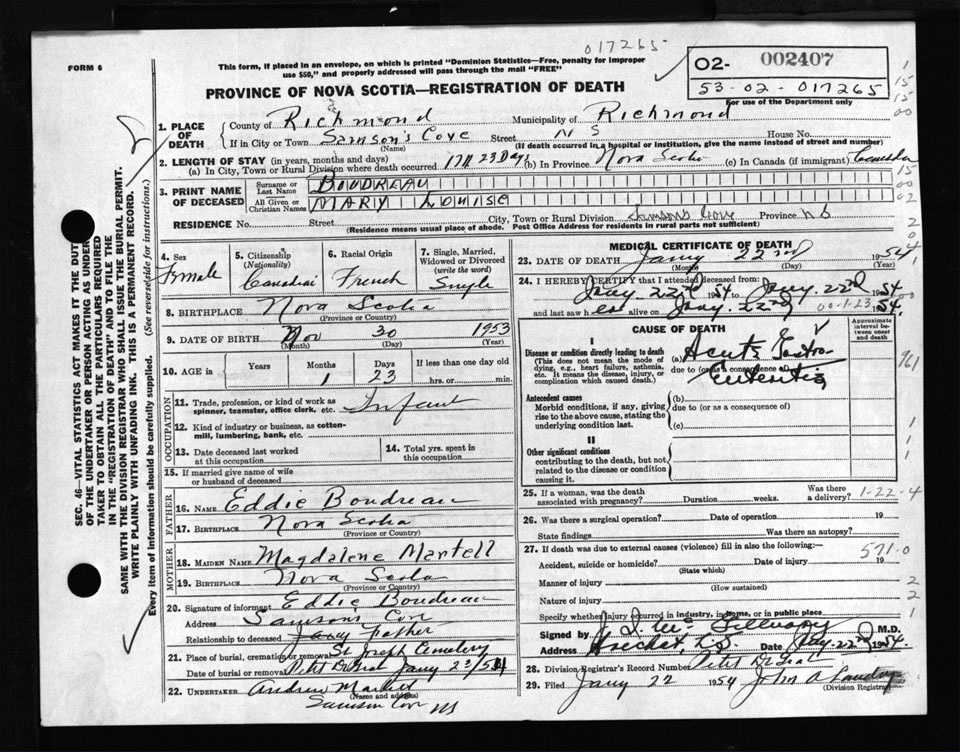 017265
FORM 6
This form, if placed in an envelope, on which is printed "Dominion Statistics—Free, penalty for improper
use $50," and properly addressed will pass through the mail "FREE"
O2- 002407
53-02-017265
For use of the Department only
PROVINCE OF NOVA SCOTIA—REGISTRATION OF DEATH
1. PLACE OF DEATH
County of Richmond Municipality of Richmond
If in City or Town Samson's Cove Street N S House No.
(Name) (If death occurred in a hospital or institution, give the name instead of street and number)
2. LENGTH OF STAY (in years, months and days)
(a) In City, Town or Rural Division where death occurred 1 M 23 Days (b) In Province Nova Scotia (c) In Canada (if immigrant) Canadian
3. PRINT NAME OF DECEASED
Surname or Last Name BOUDREAU
All Given or Christian Names MARY LOUISE
RESIDENCE No. Street City, Town or Rural Division Samsons Cove Province N S
(Residence means usual place of abode. Post Office Address for residents in rural parts not sufficient)
4. Sex Female
5. Citizenship (Nationality) Canadian
6. Racial Origin French
7. Single, Married, Widowed or Divorced (write the word) Single
8. BIRTHPLACE Nova Scotia
(Province or Country)
9. DATE OF BIRTH Nov 30 1953
(Month) (Day) (Year)
10. AGE in Years Months 1 Days 23 If less than one day old hrs. or min.
OCCUPATION
11. Trade, profession, or kind of work as spinner, teamster, office clerk, etc. Infant
12. Kind of industry or business, as cotton-mill, lumbering, bank, etc.
13. Date deceased last worked at this occupation
14. Total yrs. spent in this occupation
15. If married give name of wife or husband of deceased
FATHER
16. Name Eddie Boudreau
17. Birthplace Nova Scotia
(Province or Country)
MOTHER
18. MAIDEN NAME Magdalene Martell
19. BIRTHPLACE Nova Scotia
(Province or Country)
20. Signature of informant Eddie Boudreau
Address Samsons Cove
Relationship to deceased Father
21. Place of burial, cremation or removal St Joseph Cemetery
Date of burial or removal Petit De Grat Jany 23/54
22. UNDERTAKER Andrew Martell
(Name and address)
Samson Cove NS
MEDICAL CERTIFICATE OF DEATH
23. DATE OF DEATH Jany 22nd 1954
(Month) (Day) (Year)
24. I HEREBY CERTIFY that I attended deceased from:
Jany. 22nd 1954 to Jany. 22nd 1954
and last saw her alive on Jany. 22nd 00-1-23 1954.
CAUSE OF DEATH
Approximate interval between onset and death
I
Disease or condition directly leading to death (a) Acute Gastro-
(This does not mean the mode of dying, e.g., heart failure, asthenia, etc. It means the disease, injury, or complication which caused death.)
due to (or as a consequence of) Enteritis
Antecedent causes
Morbid conditions, if any, giving rise to the above cause, stating the underlying condition last.
(b)
due to (or as a consequence of)
(c)
II
Other significant conditions
contributing to the death, but not related to the disease or condition causing it.
25. If a woman, was the death associated with pregnancy? Duration weeks. Was there a delivery? 1-22-4
26. Was there a surgical operation? Date of operation 19
State findings Was there an autopsy?
27. If death was due to external causes (violence) fill in also the following:— 571-0
Accident, suicide or homicide? Date of injury 19
(State which)
Manner of injury
(How sustained)
Nature of injury
Specify whether injury occurred in industry, in home, or in public place
Signed by M.D.
Address Arichat, N.S. Date Jany. 22nd 1954.
28. Division Registrar's Record Number Petit De Grat
29. Filed Jany 22 1954 John A Landry
(Division Registrar)
SEC. 46—VITAL STATISTICS ACT MAKES IT THE DUTY
OF THE UNDERTAKER OR PERSON ACTING AS UNDER-
TAKER TO OBTAIN ALL THE PARTICULARS REQUIRED
IN THE "REGISTRATION OF DEATH" AND TO FILE THE
SAME WITH THE DIVISION REGISTRAR WHO SHALL ISSUE THE BURIAL PERMIT.
WRITE PLAINLY WITH UNFADING INK. THIS IS A PERMANENT RECORD.
Every item of information should be carefully supplied. (See reverse side for instructions.)